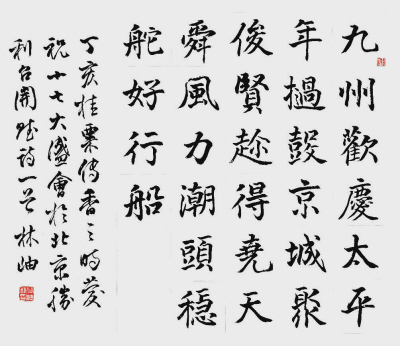 九州歡慶太平
年撾鼓京城聚
俊賢趁得堯天
舜風力潮頭穩
舵好行船
丁亥桂粟傳香之時慶
祝十七大盛會於北京勝
利召開賦詩一首 林岫